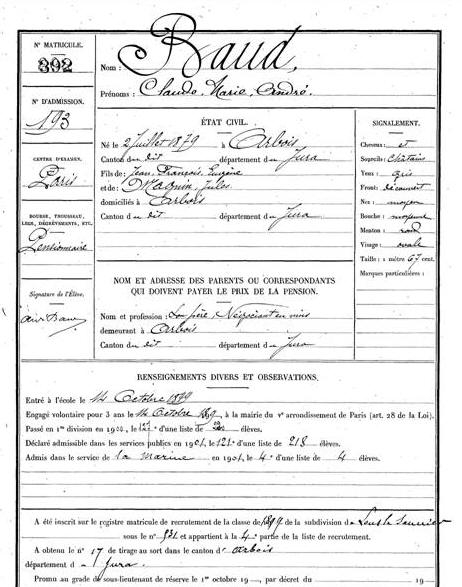 N° MATRICULE.
892
Nom : Baud,
Prénoms : Claude, Marie, André.
N° D'ADMISSION.
193
CENTRE D'EXAMEN.
Paris
BOURSE, TROUSSEAU,
LEGS, DÉGRÈVEMENTS, ETC.
Pensionnaire
Signature de l'Élève.
ÉTAT CIVIL.
Né le 2 Juillet 1879 à Arbois
Canton du dit département du Jura
Fils de : Jean, François, Eugène
et de : Jules
domiciliés à Arbois
Canton du dit département du Jura
SIGNALEMENT.
Cheveux : et
Sourcils : châtains
Yeux : gris
Front : découvert
Nez : moyen
Bouche : moyenne
Menton : rond
Visage : ovale
Taille : 1 mètre 67 cent.
Marques particulières :
NOM ET ADRESSE DES PARENTS OU CORRESPONDANTS
QUI DOIVENT PAYER LE PRIX DE LA PENSION.
Nom et profession : Son père, Négociant en vins
demeurant à Arbois
Canton du dit département du Jura
RENSEIGNEMENTS DIVERS ET OBSERVATIONS.
Entré à l'école le 14 Octobre 1899
Engagé volontaire pour 3 ans le 14 Octobre 1899, à la mairie du v° arrondissement de Paris (art. 28 de la Loi).
Passé en 1re division en 190 , le 127 d'une liste de élèves.
Déclaré admissible dans les services publics en 1901, le 121e d'une liste de 218 élèves.
Admis dans le service de la marine en 1901, le 4e d'une liste de 4 élèves.
A été inscrit sur le registre matricule de recrutement de la classe de 1899 de la subdivision de Lons le Saunier
sous le n° 931 et appartient à la 4e partie de la liste de recrutement.
A obtenu le n° 17 de tirage au sort dans le canton d' Arbois
département d Jura.
Promu au grade de sous-lieutenant de réserve le 1er octobre 19 , par décret du 19